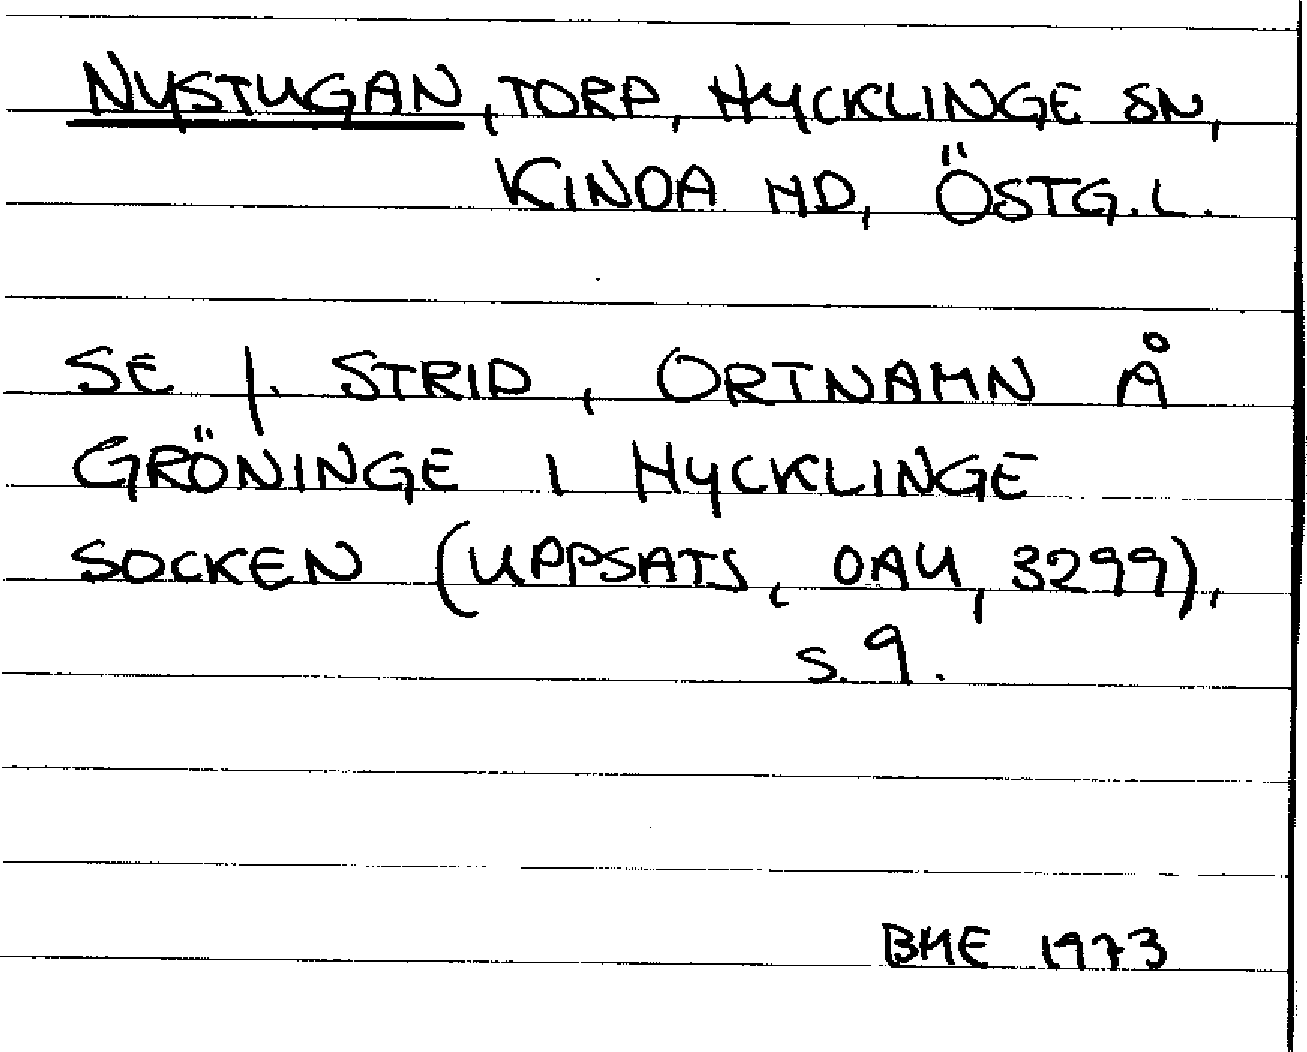 NYSTUGAN, TORP, HYCKLINGE SN,
KINDA HD, ÖSTG.L.
SE J. STRID, ORTNAMN Å
GRÖNINGE I HYCKLINGE
SOCKEN (UPPSATS, OAU, 3299),
S. 9.
BME 1973